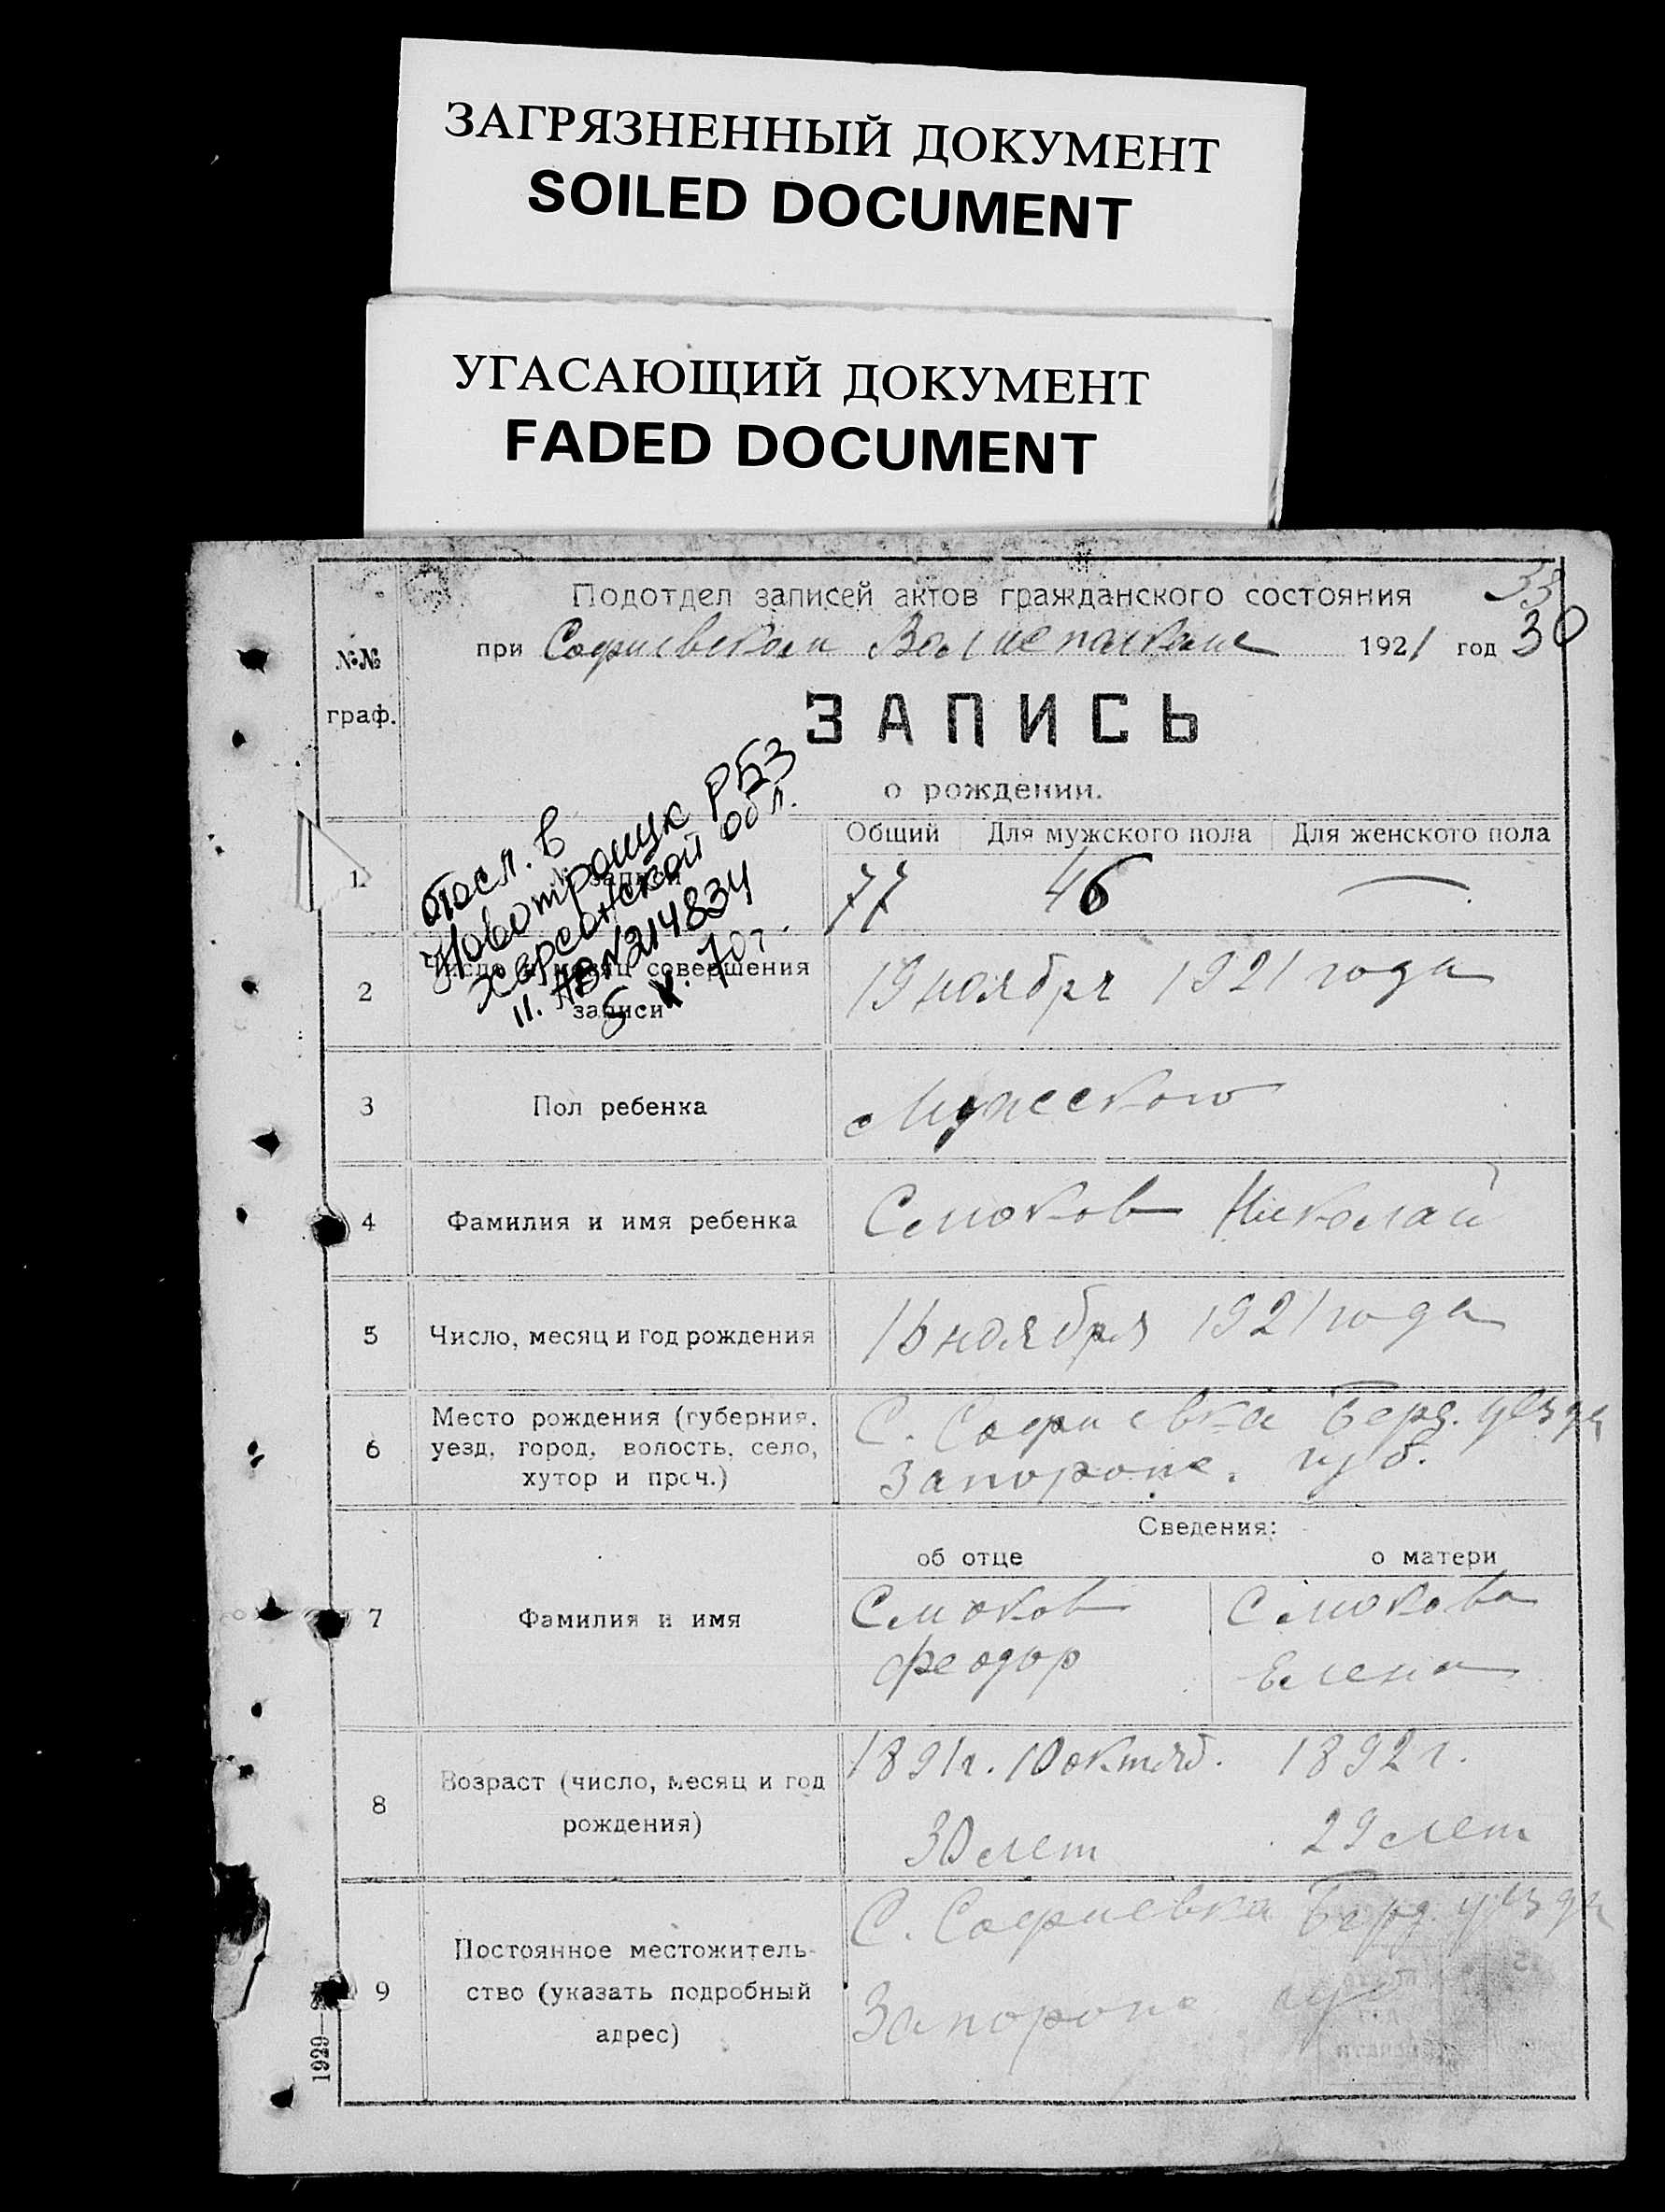 ЗАГРЯЗНЕННЫЙ ДОКУМЕНТ
SOILED DOCUMENT
УГАСАЮЩИЙ ДОКУМЕНТ
FADED DOCUMENT
Подотдел записей актов гражданского состояния
33
при Софиевском Волисполкоме 1921 год 30
№№
граф.
ЗАПИСЬ
о рождении.
Посл. в
Новотроицк РБЗ
Херсонской обл.
II. АВ №214834
5. V. 70г.
Общий Для мужского пола Для женского пола
1. записи 77 46 —
2 Число и месяц совершения
записи
19 ноября 1921 года
3 Пол ребенка Мужского
4 Фамилия и имя ребенка Смоков Николай
5 Число, месяц и год рождения 16 ноября 1921 года
6 Место рождения (губерния,
уезд, город, волость, село,
хутор и проч.)
С. Софиевка Берд. уезда
Запорож. губ.
Сведения:
об отце о матери
7 Фамилия и имя
Смоков Смокова
Феодор Елена
8 Возраст (число, месяц и год
рождения)
1891г. 10 октяб. 1892 г.
30 лет 29 лет
9 Постоянное местожитель-
ство (указать подробный
адрес)
С. Софиевка Берд. уезда
Запорож. губ
1929